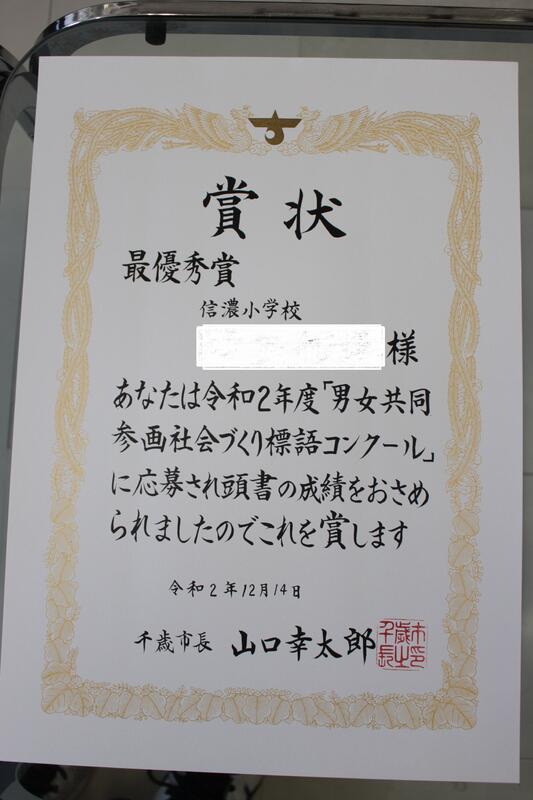 賞状
最優秀賞
信濃小学校
様
あなたは令和2年度「男女共同
参画社会づくり標語コンクール」
に応募され頭書の成績をおさめ
られましたのでこれを賞します
令和2年12月14日
千歳市長 山口幸太郎
千歳市長之印